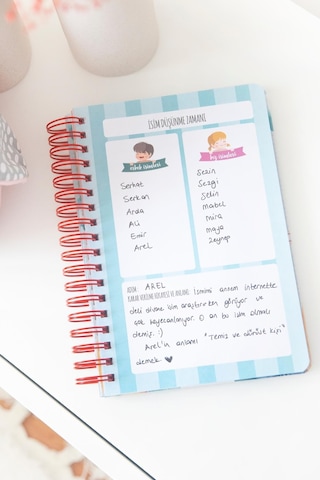 İSİM DÜŞÜNME ZAMANI
erkek isimleri
Serhat
Serkan
Arda
Ali
Emir
Arel
kız isimleri
Sezin
Sezgi
Selin
Mabel
Mira
Maya
Zeynep
ADIM: AREL
KARAR VERİLME HİKAYESİ VE ANLAMI: İsmimi annem internette
dedi isim araştırırken görüyor ve
çok heyecanlanıyor. O an bu isim olmalı
demiş. :)
Arel'in anlamı "Temiz ve dürüst kişi"
demek ♥